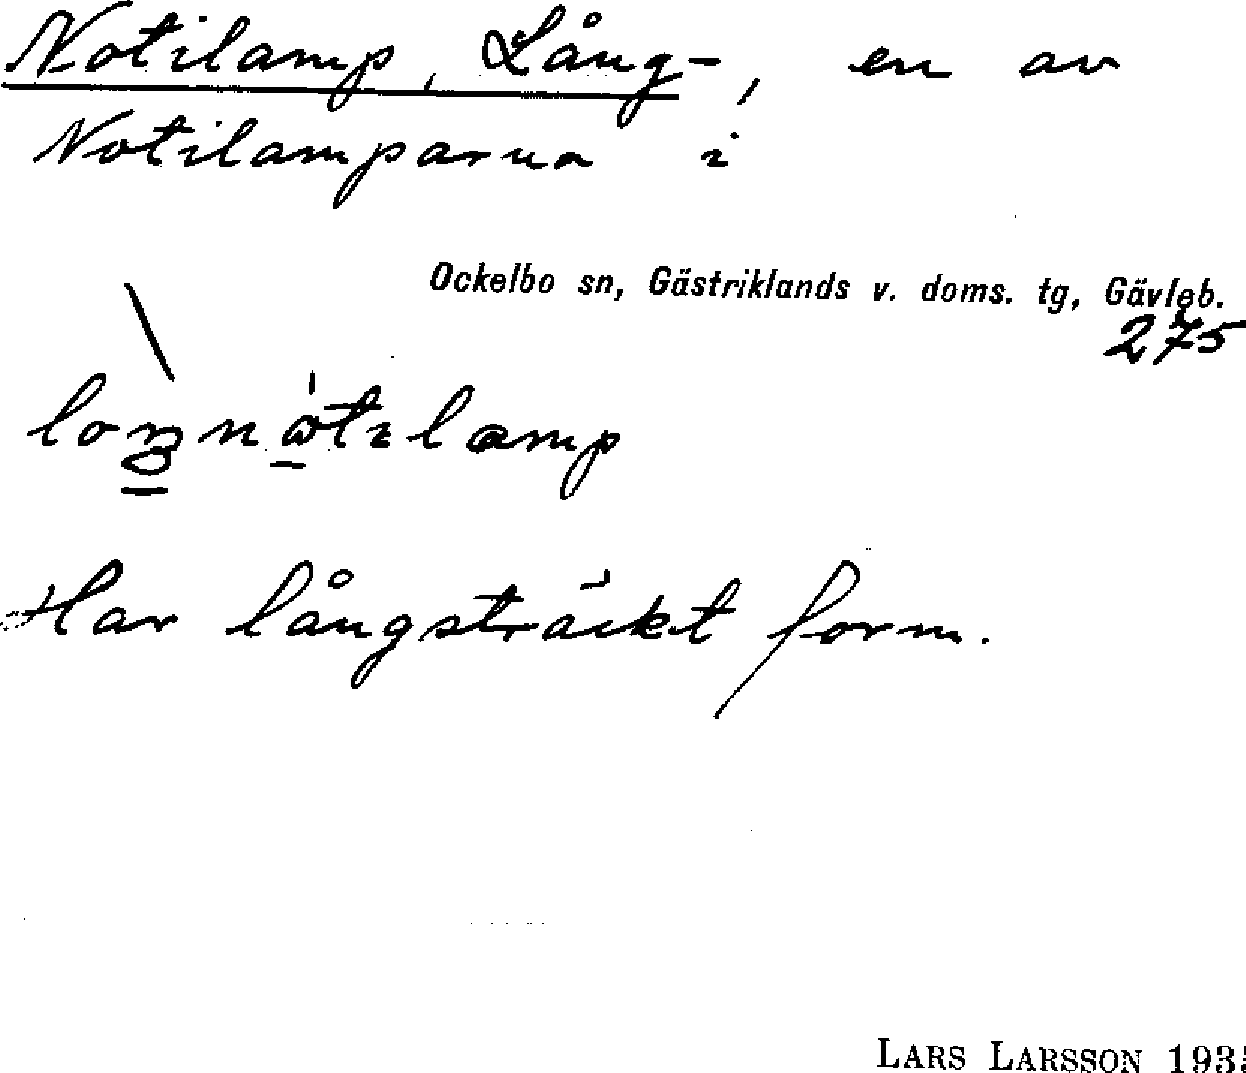 Notilamp, Lång-, en av
Notilamparna i
Ockelbo sn, Gästriklands v. doms. tg, Gävleb.
275
Har långsträckt form.
LARS LARSSON